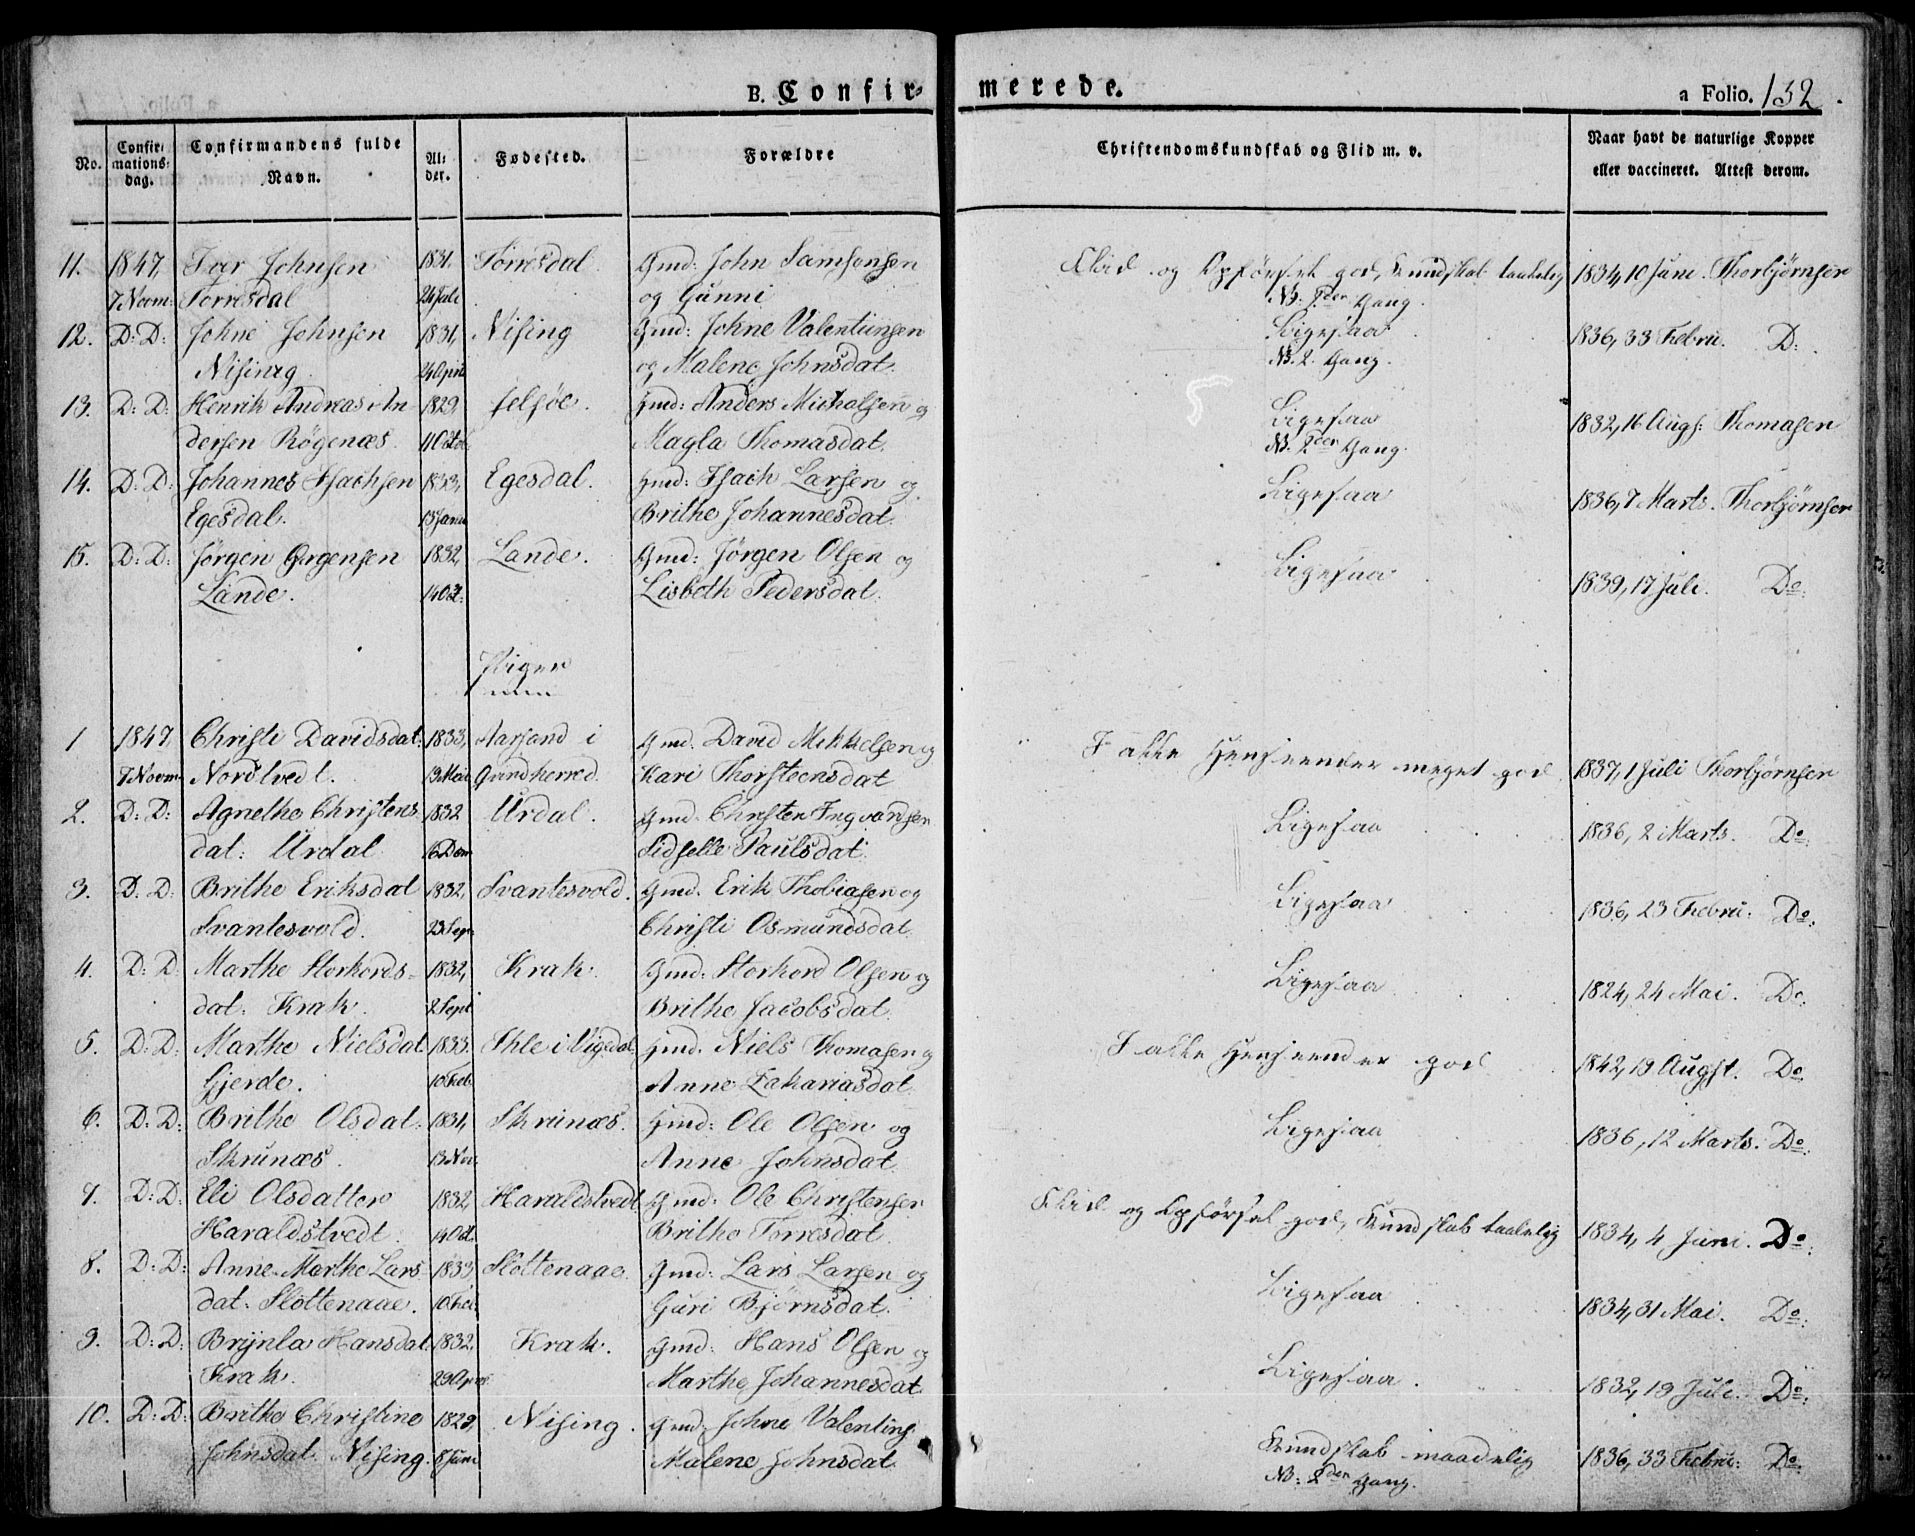 B. Confir-
merede.
a Folio. 132
No. Confir- mations- dag. Confirmandens fulde Navn. Al- der. Fødested. Forældre Christendomskundskab og Flid m. v. Naar havt de naturlige Kopper eller vaccineret. Attest derom.
11. 1847, Johnsen 1831. Torresdal. Gmd: John Samsonsen Flid og Opførsel god, Kundskab taalelig 1834, 10 Juni. Thorbjørnsen
7 Novm: Torresdal 24 Juli og Gunni NB: 2den Gang.
12. D: D: Johne Johnsen 1831, Nising Gmd: Johne Valentinsen Ligesaa 1836, 33 Febru. D:
Nising. 24 April og Malene Johnsdat. NB. 2. Gang.
13. D: D: Henrik Andreas An- 1829, Gmd: Anders Micholsen og Ligesaa 1832, 16 Augs: Thomasen
dersen Røgenæs. 11 Octob. Magla Thomasdat. NB. 2den Gang.
14. D: D: Johannes Isachsen 1833, Egesdal. Gmd: Isach Larsen og Ligesaa 1836, 7 Marts. Thorbjørnsen
Egesdal. 13 Janu Brithe Johannesdat.
15. D: D: Jørgen Ørgensen 1832, Lande. Gmd: Jørgen Olsen og Ligesaa 1839, 17 Juli. Do:
Lande. 14 Oct: Lisbeth Pedersdat.
Piger
1 1847, Christi Davidsdat: 1833, Aarsand i Gmd. David Mikkelsen og I alle Henseender meget god. 1837, 1 Juli Thorbjørnsen
7 Novm. Nordtvedt. 13 Mai Qvindherred. Kari Thorsteensdat
2. D: D: Agnethe Christens 1832 Urdal. Gmd: Christen Ingvardsen Ligesaa 1836, 2 Marts. Do:
dat: Urdal 16 Dem Sidselle Paulsdat.
3. D: D: Brithe Eriksdat 1832, Svantesvold. Gmd. Erik Thobiasen og Ligesaa 1836, 23 Febru: Do:
Svantesvold. 23 Sep: Christi Osmundsdat.
4. D: D: Marthe Storkords- 1832, Krak. Gmd: Storkord Olsen og Ligesaa 1824, 24 Mai. Do:
dat: Krak. 2 Sept Brithe Jacobsdat.
5. D: D: Marthe Nielsdat. 1833. Ihle i Vigedal. Gmd. Niels Thomasen og I alle Henseender god 1842, 19 Augst. Do:
Gjerde. 10 Feb. Anne Zakariasdat
6. D: D: Brithe Olsdat. 1831, Skrunæs. Gmd: Ole Olsen og Ligesaa 1836, 12 Marts. Do:
Skrunæs. 13 Nov. Anne Johnsdat.
7. D: D: Eli Olsdatter 1832, Haraldstvedt Gmd: Ole Christensen Flid og Opførsel god, Kundskab taalelig 1834, 4 Juni. Do:
Haraldstvedt. 14 Oct. Brithe Torresdat.
8. D: D: Anne Marthe Lars 1833, Slottenaae. Gmd: Lars Larsen og Ligesaa 1834, 31 Mai. Do:
dat: Slottenaae. 10 Feb. Guri Bjørnsdat.
9. D: D: Brynla Hansdat 1832, Krak. Gmd: Hans Olsen og Ligesaa 1832, 19 Juli. Do:
Krak. 29 April Marthe Johannesdat
10. D: D: Brithe Christine 1829, Nising. Gmd: Johne Valentins Kundskab maadelig 1836, 33 Febru: Do:
Johnsdat. Nising. 8 Juni Malene Johnsdat NB: 2den Gang.